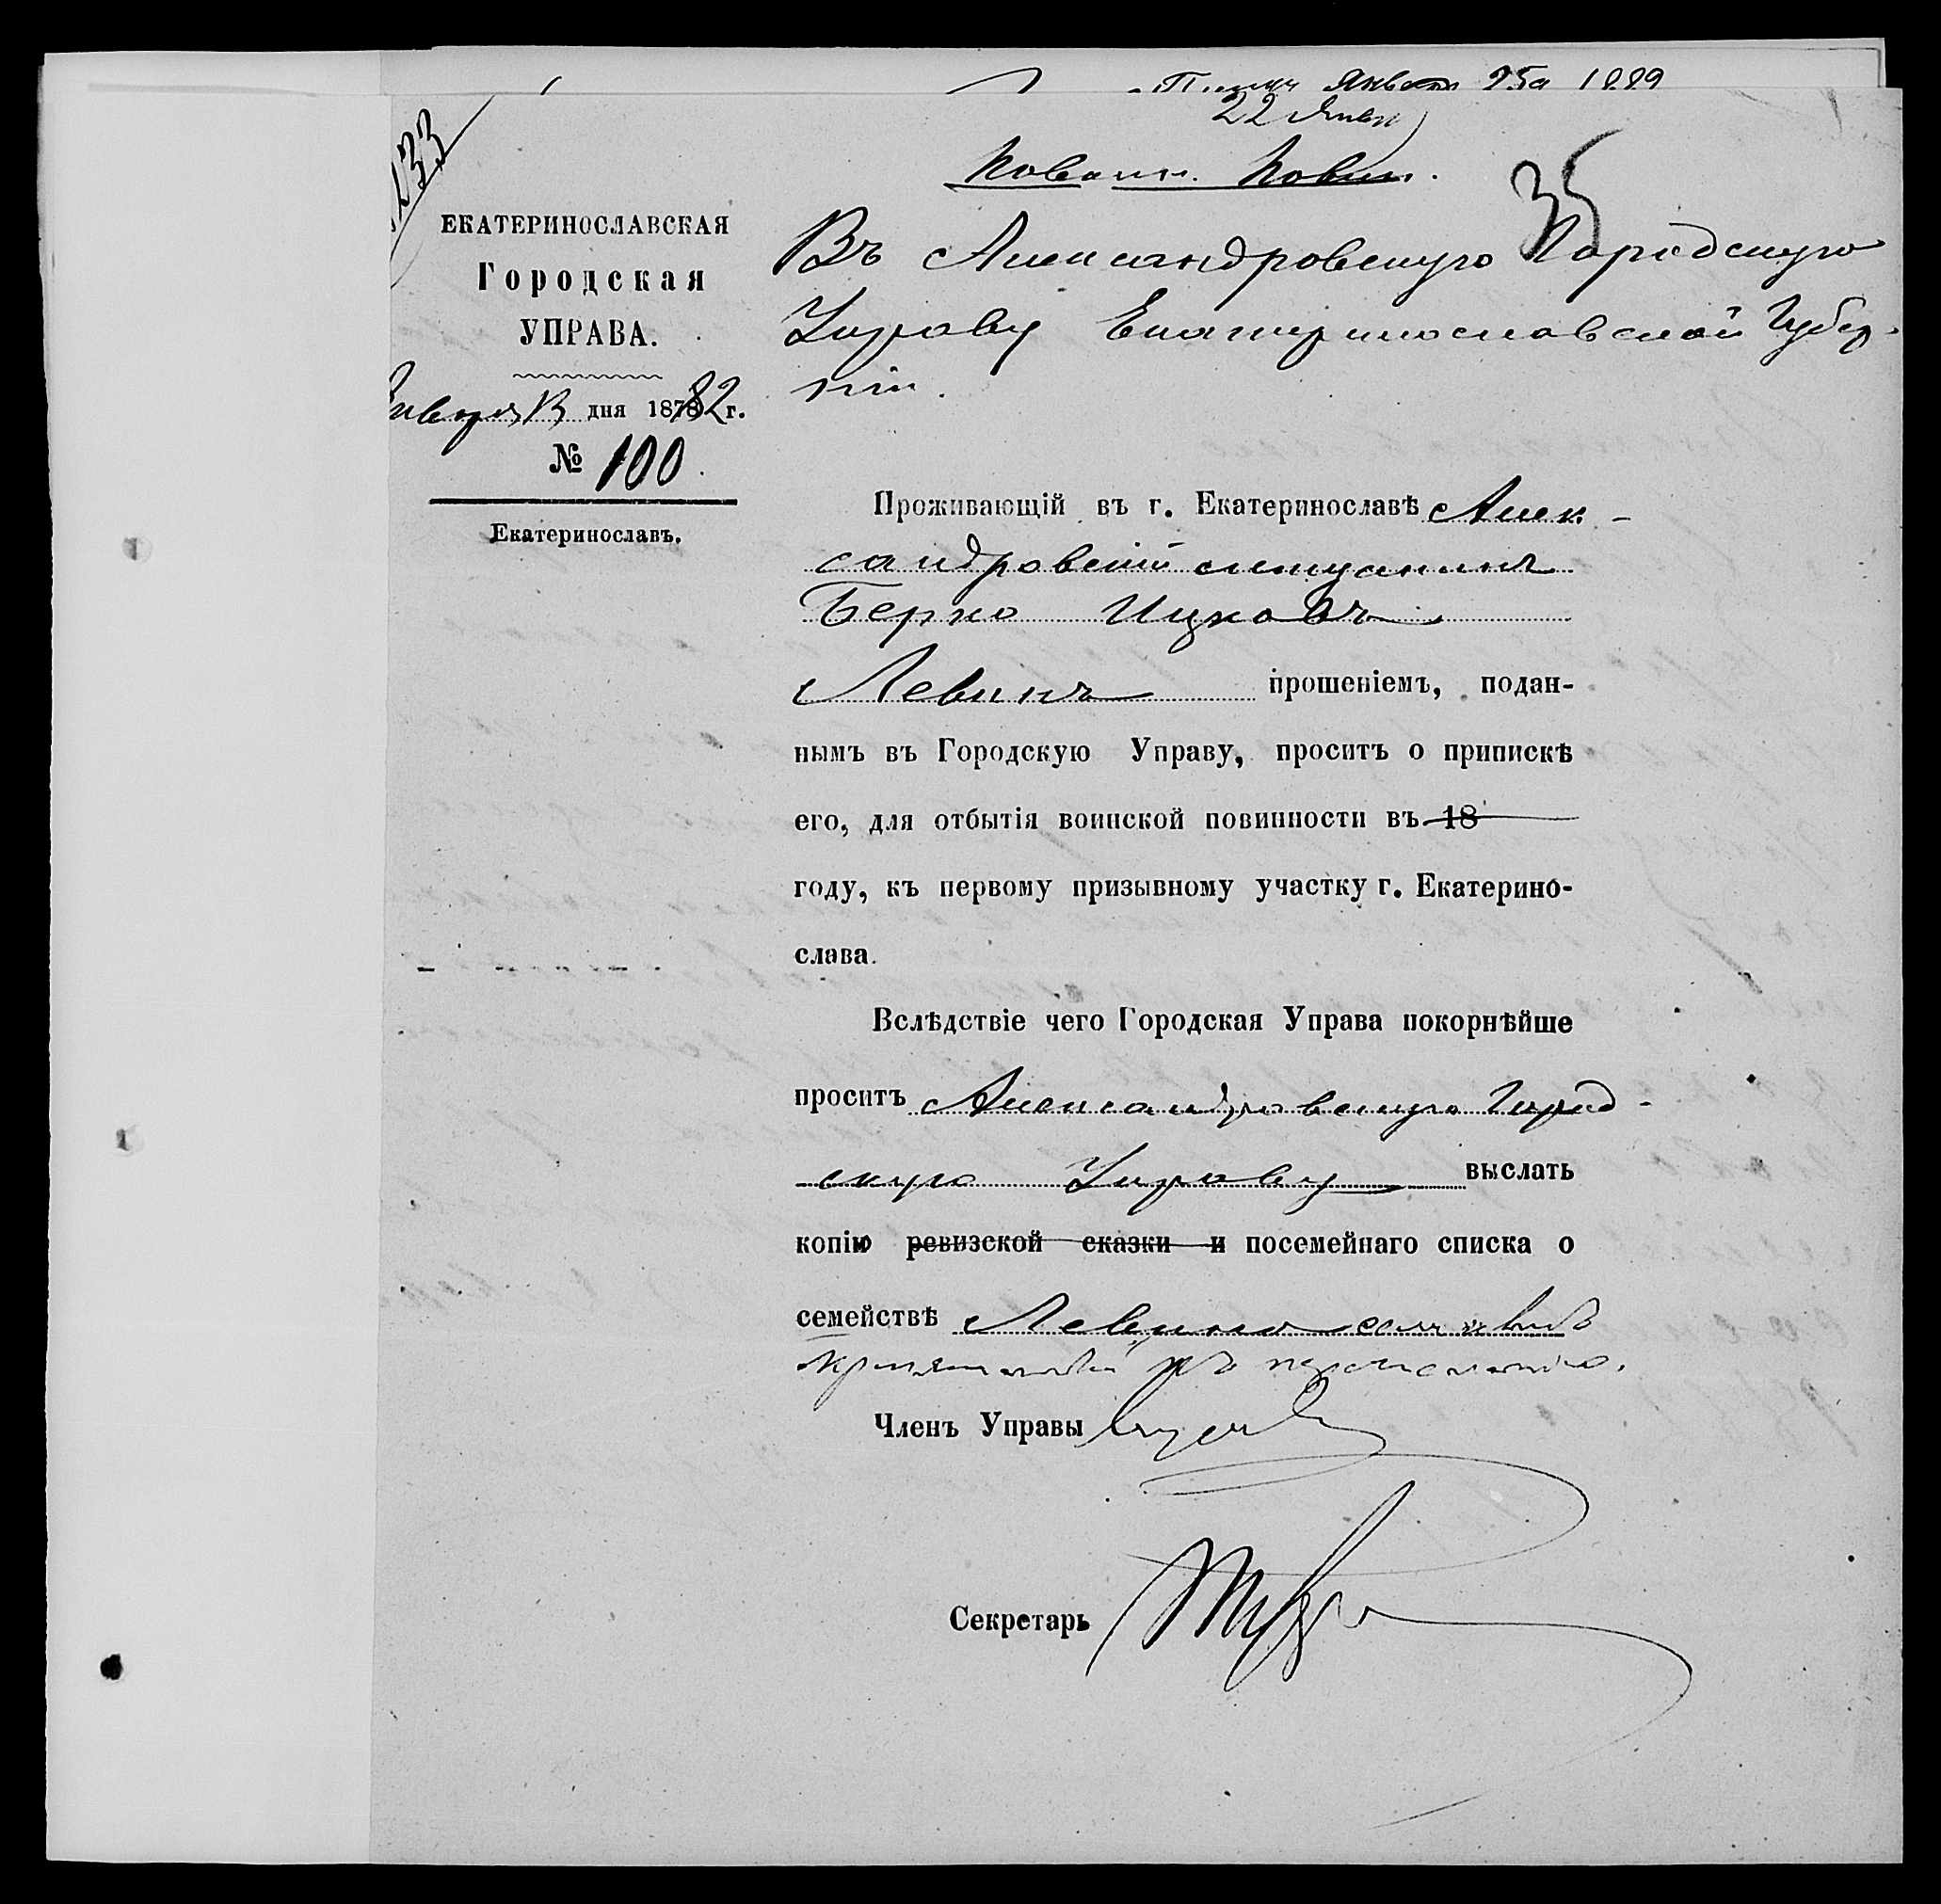 Января 25го 1882
22 Янвр
133
Повоин. Повин.
35
ЕКАТЕРИНОСЛАВСКАЯ
Городская
УПРАВА.
Января 13 дня 18782 г.
№ 100.
Екатеринославъ.
Въ Александровскую Городскую
Управу Екатеринославской Губер-
ніи.
Проживающій въ г. Екатеринославѣ Алек-
сандровскій мещанинъ
Берко Ицковъ
Левинъ прошеніемъ, подан-
нымъ въ Городскую Управу, проситъ о припискѣ
его, для отбытія воинской повинности въ 18
году, къ первому призывному участку г. Екатерино-
слава.
Вслѣдствіе чего Городская Управа покорнѣйше
проситъ Александровскую Город-
скую Управу выслать
копію ревизской сказки и посемейнаго списка о
семействѣ Левина
Членъ Управы
Секретарь